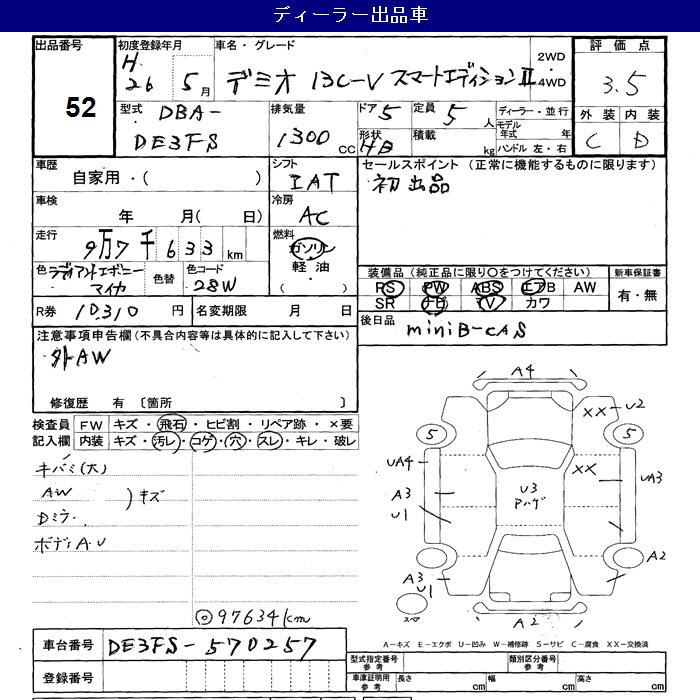 ディーラー出品車
出品番号 初度登録年月 車名・グレード 評価点
52
H 26年 5月 デミオ 13C-V スマートエディションⅡ 2WD 4WD 3.5
型式 DBA- DE3FS
排気量 1300 CC
ドア 5 形状 HB
定員 5人 積載 kg
ディーラー・並行 モデル年式 年 ハンドル 左・右
外装 内装
C D
車歴 自家用・( )
シフト IAT
セールスポイント (正常に機能するものに限ります)
初出品
車検 年 月( 日)
冷房 AC
走行 9万7千633km
燃料 ガソリン・軽油・( )
色 ラディアントエボニーマイカ 色替 色コード 28W
装備品(純正品に限り○をつけてください) 新車保証書
RS PW ABS エアB AW 有・無
SR ナビ TV カワ
R券 10310円 名変期限 月 日
後日品 miniB-CAS
注意事項申告欄(不具合内容等は具体的に記入して下さい)
外AW
修復歴 有 〔箇所 〕
検査員記入欄
FW キズ・飛石・ヒビ割・リペア跡・×要
内装 キズ・汚レ・コゲ・穴・スレ・キレ・破レ
キバミ(大)
AW
Dミラー )キズ
ボディA・U
◎97634km
A4
XX U2
5 5
UA4 XX UA3
A3 U3
U1 Pハゲ
A2
A3 U1
スペア A2
A-キズ E-エクボ U-凹み W-補修跡 S-サビ C-腐食 XX-交換済
車台番号 DE3FS-570257
型式指定番号 参考 類別区分番号 参考
登録番号
車庫証明用 参考 長さ cm 幅 cm 高さ cm